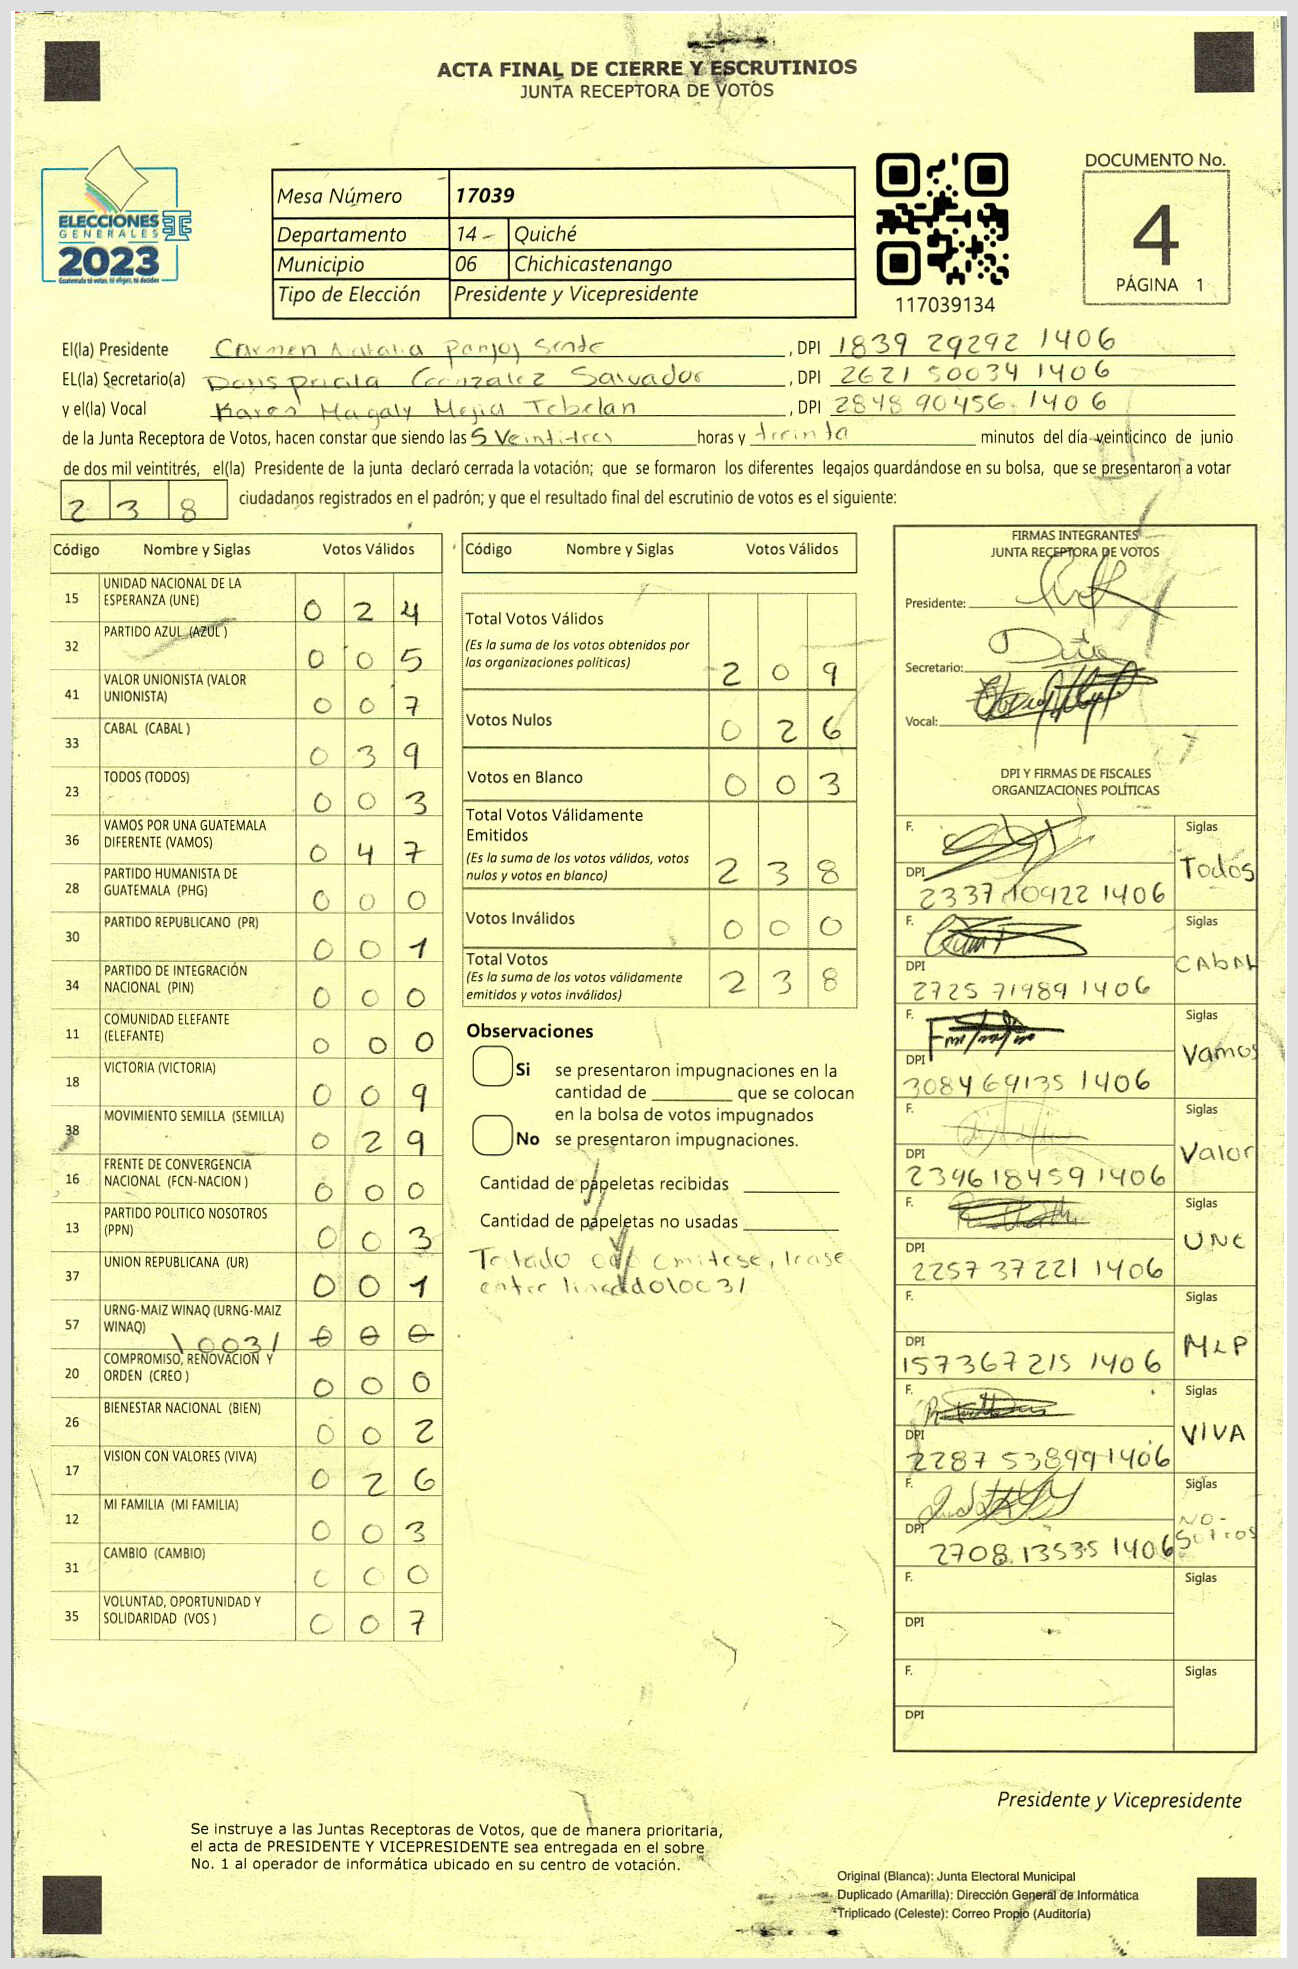 ACTA FINAL DE CIERRE Y ESCRUTINIOS
JUNTA RECEPTORA DE VOTOS
ELECCIONES
GENERALES
2023
Guatemala tú votas, tú eliges, tú decides
Mesa Número 17039
Departamento 14 Quiché
Municipio 06 Chichicastenango
Tipo de Elección Presidente y Vicepresidente
117039134
DOCUMENTO No.
4
PÁGINA 1
El(la) Presidente Carmen Natalia Panjoj , DPI 1839 29292 1406
EL(la) Secretario(a) Gonzalez Salvador , DPI 2621 50034 1406
y el(la) Vocal Karen Magaly Mejia Tebelan , DPI 2848 90456 1406
de la Junta Receptora de Votos, hacen constar que siendo las Veintitres horas y treinta minutos del día veinticinco de junio
de dos mil veintitrés, el(la) Presidente de la junta declaró cerrada la votación; que se formaron los diferentes legajos quardándose en su bolsa, que se presentaron a votar
2 3 8 ciudadanos registrados en el padrón; y que el resultado final del escrutinio de votos es el siguiente:
Código Nombre y Siglas Votos Válidos
15 UNIDAD NACIONAL DE LA ESPERANZA (UNE) 0 2 4
32 PARTIDO AZUL (AZUL ) 0 0 5
41 VALOR UNIONISTA (VALOR UNIONISTA) 0 0 7
33 CABAL (CABAL ) 0 3 9
23 TODOS (TODOS) 0 0 3
36 VAMOS POR UNA GUATEMALA DIFERENTE (VAMOS) 0 4 7
28 PARTIDO HUMANISTA DE GUATEMALA (PHG) 0 0 0
30 PARTIDO REPUBLICANO (PR) 0 0 1
34 PARTIDO DE INTEGRACIÓN NACIONAL (PIN) 0 0 0
11 COMUNIDAD ELEFANTE (ELEFANTE) 0 0 0
18 VICTORIA (VICTORIA) 0 0 9
38 MOVIMIENTO SEMILLA (SEMILLA) 0 2 9
16 FRENTE DE CONVERGENCIA NACIONAL (FCN-NACION ) 0 0 0
13 PARTIDO POLITICO NOSOTROS (PPN) 0 0 3
37 UNION REPUBLICANA (UR) 0 0 1
57 URNG-MAIZ WINAQ (URNG-MAIZ WINAQ) \003/ 0 0 0
20 COMPROMISO, RENOVACION Y ORDEN (CREO ) 0 0 0
26 BIENESTAR NACIONAL (BIEN) 0 0 2
17 VISION CON VALORES (VIVA) 0 2 6
12 MI FAMILIA (MI FAMILIA) 0 0 3
31 CAMBIO (CAMBIO) 0 0 0
35 VOLUNTAD, OPORTUNIDAD Y SOLIDARIDAD (VOS ) 0 0 7
Código Nombre y Siglas Votos Válidos
Total Votos Válidos
(Es la suma de los votos obtenidos por
las organizaciones políticas) 2 0 9
Votos Nulos 0 2 6
Votos en Blanco 0 0 3
Total Votos Válidamente
Emitidos
(Es la suma de los votos válidos, votos
nulos y votos en blanco) 2 3 8
Votos Inválidos 0 0 0
Total Votos
(Es la suma de los votos válidamente
emitidos y votos inválidos) 2 3 8
Observaciones
Si se presentaron impugnaciones en la
cantidad de ________ que se colocan
en la bolsa de votos impugnados
No se presentaron impugnaciones.
Cantidad de papeletas recibidas
Cantidad de papeletas no usadas
Testado omitese, lease
entre lineado \003/
FIRMAS INTEGRANTES
JUNTA RECEPTORA DE VOTOS
Presidente:
Secretario:
Vocal:
DPI Y FIRMAS DE FISCALES
ORGANIZACIONES POLÍTICAS
F. Siglas
DPI 2337 10922 1406 Todos
F. Siglas
DPI 2725 71989 1406 CAbAL
F. Siglas
DPI 3084 69135 1406 Vamos
F. Siglas
DPI 2396 18459 1406 Valor
F. Siglas
DPI 2257 37221 1406 UNE
F. Siglas
DPI 157367215 1406 MLP
F. Siglas
DPI 2287 53899 1406 VIVA
F. Siglas
DPI 2708 13535 1406 NO-SOTROS
F. Siglas
DPI
F. Siglas
DPI
Presidente y Vicepresidente
Se instruye a las Juntas Receptoras de Votos, que de manera prioritaria,
el acta de PRESIDENTE Y VICEPRESIDENTE sea entregada en el sobre
No. 1 al operador de informática ubicado en su centro de votación.
Original (Blanca): Junta Electoral Municipal
Duplicado (Amarilla): Dirección General de Informática
Triplicado (Celeste): Correo Propio (Auditoría)